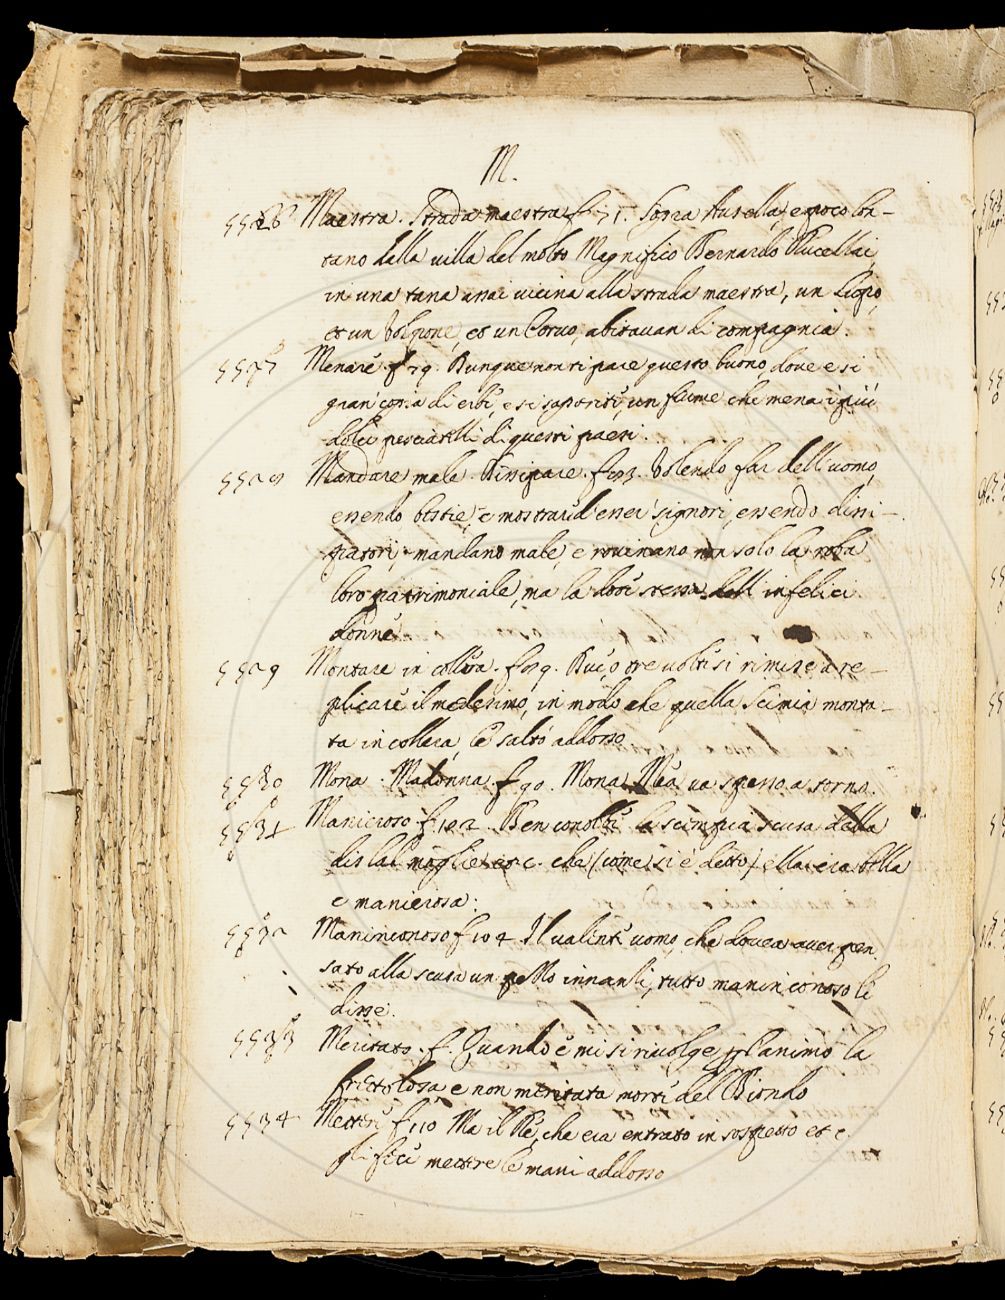 M.
5526 Maestra. Strada maestra f. 71. Sopra Ausella, e poco lon-
tano dalla villa del molto Magnifico Bernardo Rucellai,
in una tana assai vicina alla strada maestra, un Lupo,
et un Volpone, et un Corvo, abitavan di compagnia.
5527 Menare f. 79. Dunque non ti piace questo buono, dove è sì
gran copia di erbe, e sì saporite, un fiume che mena i più
dolci pesciatelli di questi paesi.
5528 Mandare male. Dissipare. f. 83. Volendo far dell'uomo,
essendo bestie, e mostrar d'esser signori, essendo dissi-
patori, mandano male, e rovinano non solo la roba
loro patrimoniale, ma la dote stessa dell'infelici
donne.
5529 Montare in collera. f. 89. Due, o tre volte si rimise a re-
plicare il medesimo, in modo che quella Scimia monta-
ta in collera, le saltò addosso.
5530 Mona. Madonna. f. 90. Mona Mea va spesso a torno.
5531 Manieroso f. 102. Ben conobbe la scempia scusa della
disleal moglie etc. che (come si è detto) ella era bella
e manierosa.
5532 Maninconoso f. 104. Il valente uomo, che dovea aver pen
sato alla scusa un pezzo innanzi, tutto maninconoso le
disse.
5533 Meritata. f. Quando e' mi si rivolge per l'animo la
frettolosa, e non meritata morte del Biondo
5534 Mettere f. 110 Ma il Re, che era entrato in sospetto etc.
gli fece mettere le mani addosso